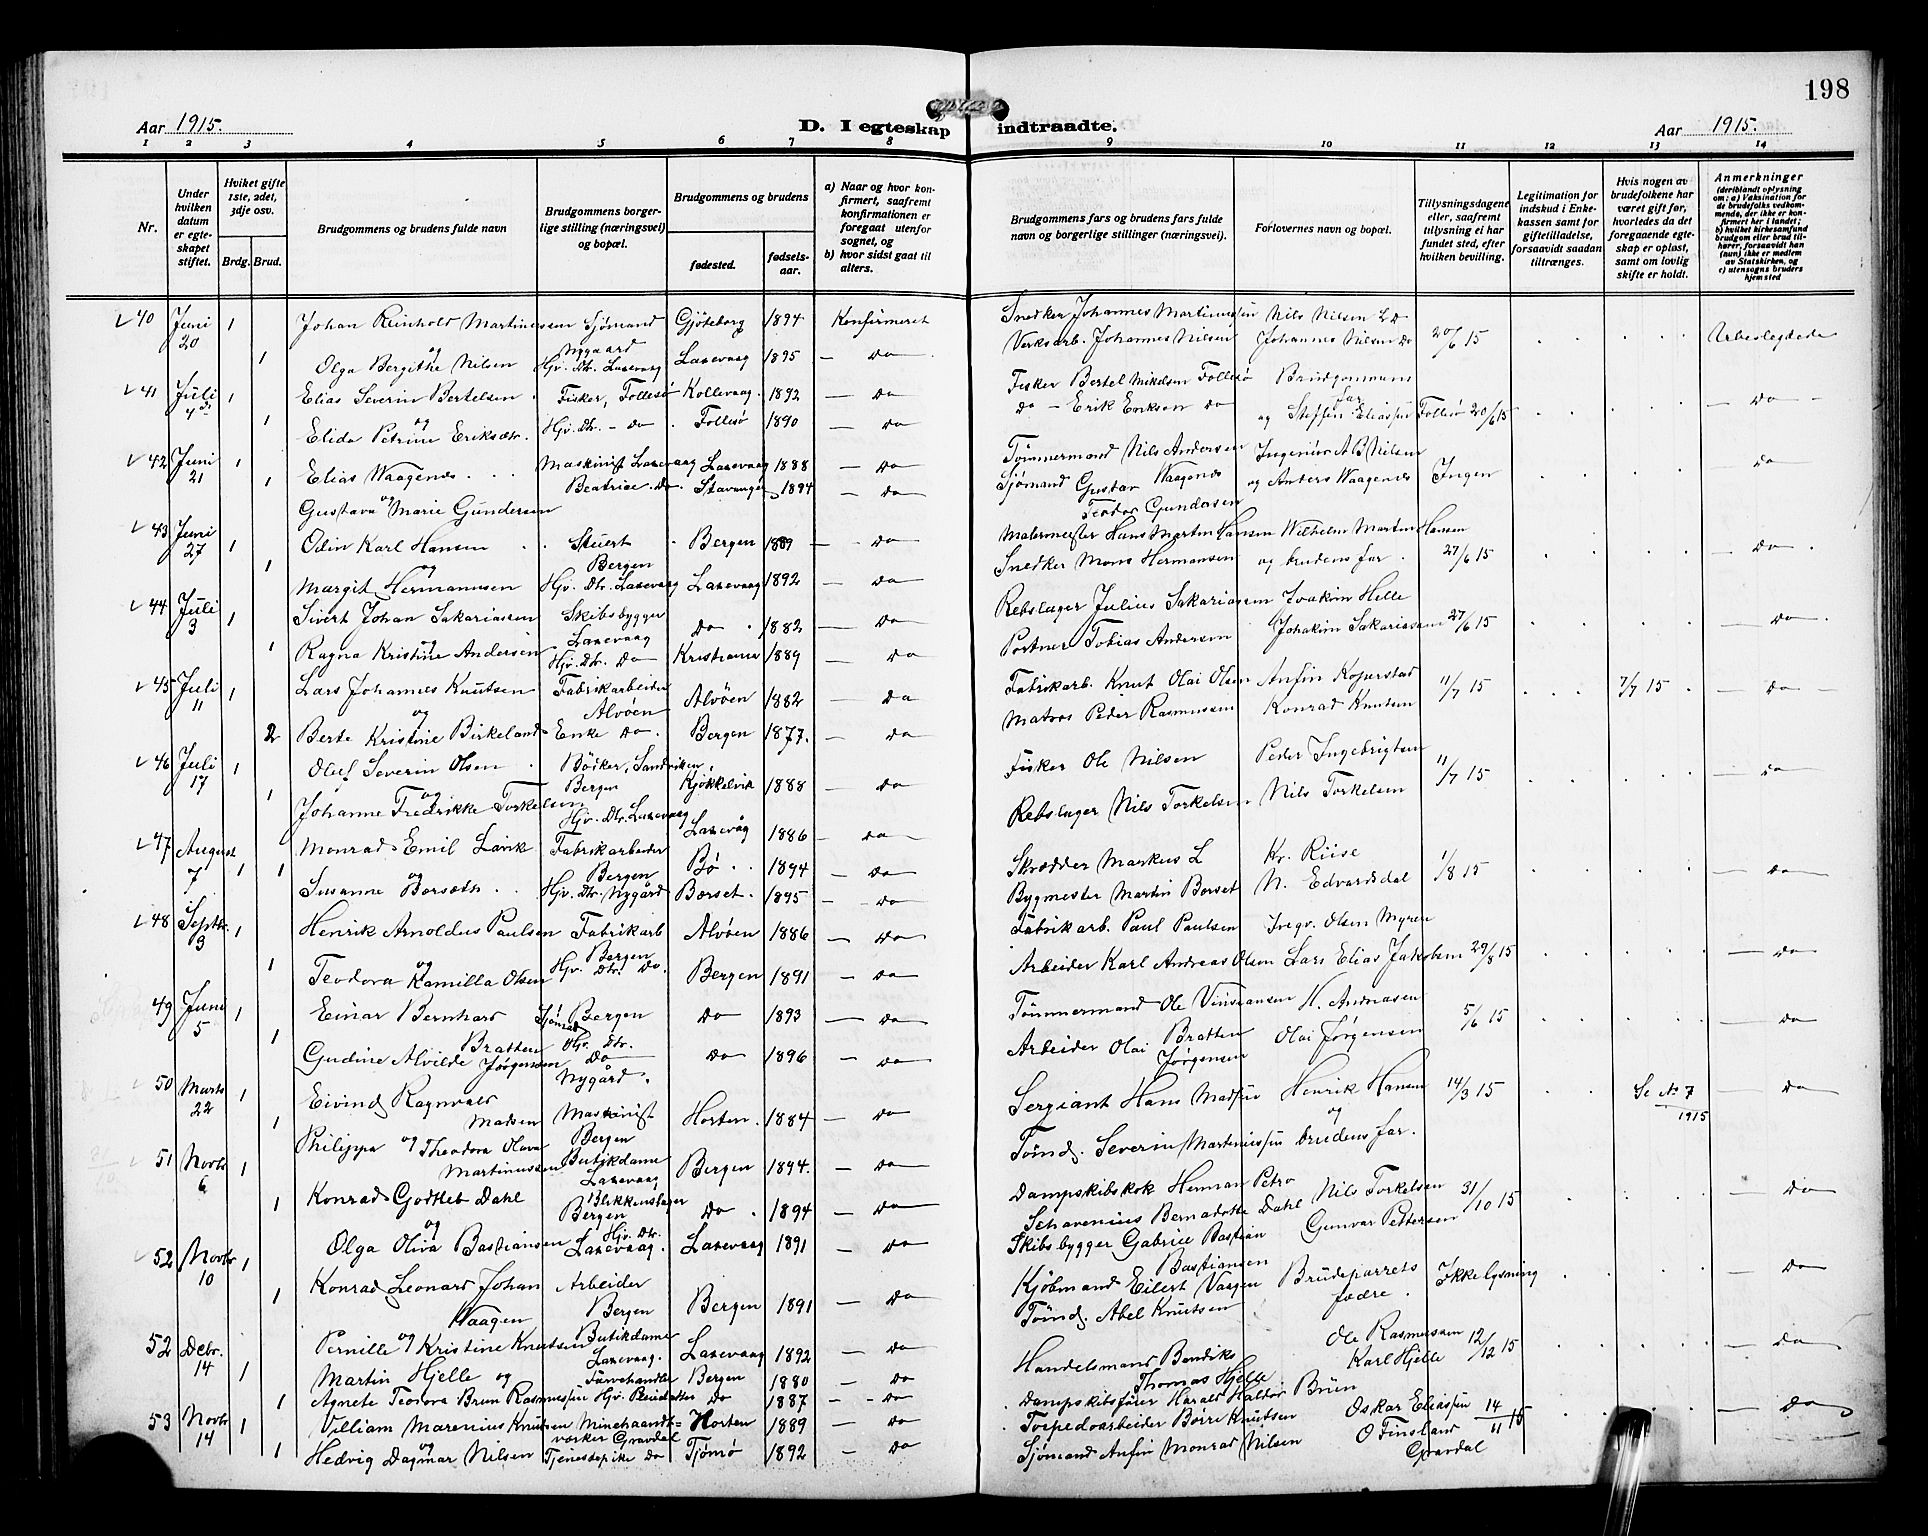 198
Aar 1915.
D. I egteskap indtraadte.
Aar 1915.
1 2 3 4 5 6 7 8 9 10 11 12 13 14
Nr.
Under hvilken datum er egteskapet stiftet.
Hviket gifte, 1ste, 2det, 3dje osv.
Brdg. Brud.
Brudgommens og brudens fulde navn
Brudgommens borgerlige stilling (næringsvei) og bopæl.
Brudgommens og brudens
fødested.
fødselsaar.
a) Naar og hvor konfirmert, saafremt konfirmationen er foregaat utenfor sognet, og
b) hvor sidst gaat til alters.
Brudgommens fars og brudens fars fulde navn og borgerlige stillinger (næringsvei).
Forlovernes navn og bopæl.
Tillysningsdagene eller, saafremt tillysning ei har fundet sted, efter hvilken bevilling.
Legitimation for indskud i Enkekassen samt for giftetilladelse, forsaavidt saadan tiltrænges.
Hvis nogen av brudefolkene har været gift før, hvorledes da det foregaaende egteskap er opløst, samt om lovlig skifte er holdt.
Anmerkninger
(deriblandt oplysning om: a) Vaksination for de brudefolks vedkommende, der ikke er konfirmert her i landet; b) hvilket kirkesamfund brudgom eller brud tilhører, forsaavidt han (hun) ikke er medlem av Statskirken, og c) utensogns bruders hjemsted
40 Juni 20 1 Johan Reinhold Martinessen Sjømand Nygaard Gjøteborg 1894 Konfirmeret Snedker Johannes Martinussen Nils Nilsen 20/6 15
og 1 Olga Bergithe Nilsen Hjv. Dtr. Laxevaag Laxevaag 1895 — Do Verksarb. Johannes Nilsen Johannes Nilsen Do
41 Juli 4de 1 Elias Severin Bertelsen Fisker, Follesø Kollevaag 1892 — Do Fisker Bertel Mikelsen Follesø Brudgommens far — Do —
og 1 Elida Petrine Eriksdtr. Hjv. Dtr. — Do Follesø 1890 — Do Do — Erik Eriksen Do og Steffen Eliassen Follesø 20/6 15
42 Juni 21 1 Elias Waagenes Maskinist Laxevaag Laxevaag 1888 — Do Tømmermand Nils Andersen Waagenes Ingeniør A B Nilsen Ingen Do
og 1 Gustava Marie Gundersen Beatrice Do Stavanger 1894 — Do Sjømand Gustav Teodor Gundersen og Anders Waagenes
43 Juni 27 1 Odin Karl Hansen Stuert Bergen Bergen 1889 — Do Malermester Hans Martin Hansen Wilhelm Martin Hansen 27/6 15 — Do
og 1 Margit Hermannsen Hjv. Dtr. Laxevaag Laxevaag 1892 — Do Snedker Mons Hermansen og brudens far
44 Juli 3 1 Sivert Johan Sakariassen Skibsbygger Laxevaag Do 1882 — Do Rebslager Julius Sakariassen Joakim Helle 27/6 15 — Do
og 1 Ragna Kristine Andersen Hjv. Dtr. Do Kristiania 1889 — Do Portner Tobias Andersen Johakim Sakariassen
45 Juli 11 1 Lars Johannes Knutsen Fabrikarbeider Alvøen Alvøen 1882 — Do Fabrikarb. Knut Olai Olsen 11/7 15 7/7 15 Do
og 2 Berte Kristine Birkeland Enke Do. Bergen 1877. — Do Matros Peder Rasmussen Konrad Knutsen
46 Juli 17 1 Oluf Severin Olsen Bødker, Sandviken, Bergen Kjøkkelvik 1888 — Do Fisker Ole Nilsen Peder Ingebrigtsen 11/7 15 Do
og 1 Johanne Fredrikke Torkelsen Hjv. Dtr. Laxevaag Laxevåg 1886 — Do Rebslager Nils Torkelsen Nils Torkelsen
47 August 7 1 Monrad Emil Lavik Fabrikarbeider Bergen Bø 1894 — Do Skrædder Markus L Kr. Riise 1/8 15 — Do
og 1 Susanne Borseth Hjv. Dtr. Nygård Borset. 1895 — Do Bygmester Martin Borset N. Edvardsdal
48 Septbr. 3 1 Henrik Arnoldus Paulsen Fabrikarb Bergen Alvøen 1886 — Do Fabrikarb. Paul Paulsen Ingv. Olsen Myren 29/8 15 — Do
og 1 Teodora Kamilla Olsen Hjv. Dtr. Do. Bergen 1891 — Do Arbeider Karl Andreas Olsen Lars Elias Jakobsen
49 Juni 5 1 Einar Bernhard Bratten Bergen Do 1893 — Do Tømmermand Ole Bratten 5/6 15 — Do
1 Gudine Alvilde Jørgensen Hjv. Dtr. Do Nygård. Do 1896 — Do Arbeider Olai Jørgensen Olai Jørgensen
50 Marts 22 1 Eivind Ragnvald Madsen Maskinist Bergen Horten. 1884 — Do Sergiant Hans Madsen Henrik Hansen 14/3 15 Se No 7 1915 — Do
1 Philippa og Theodora Olava Martinussen Butikdame Laxevaag Bergen 1894. — Do Tønd. Severin Martinussen og brudens far.
51 Novbr 6 1 Konrad Godtleb Dahl Blikkenslager Bergen Do 1894 — Do Dampskibskok Herman Petro Schavenius Bernadotte Dahl Nils Torkelsen 31/10 15 — Do
og 1 Olga Oliva Bastiansen Hjv. Dtr. Laxevaag. Laxevaag 1891 — Do Skibsbygger Gabriel Bastian Bastiansen Gunvar Pettersen
52 Novbr 10 1 Konrad Leonard Johan Waagen Arbeider Bergen Bergen 1891 — Do Kjøbmand Eilert Vaagen Brudeparrets fædre. Ikke lysning — Do
1 Pernille og Kristine Knutsen Butikdame Laxevaag. Laxevaag 1892 — Do Tønd. Abel Knutsen
52 Debr. 14 1 Martin Hjelle og Farvehandler Bergen 1880 — Do Handelsmand Bendiks Thomas Hjelle Ole Rasmussen Karl Hjelle 12/12 15 — Do
1 Agnete Teodora Brun Rasmussen Hjv. Do 1887 — Do Dampskibsfører Harald Haldor Brun
53 Novbr 14 1 Villiam Marenius Knutsen Minehaandtværker Gravdal Horten 1889 — Do Torpedoarbeider Børre Knutsen Oskar Eliassen 14/11 15 — Do
og 1 Hedvig Dagmar Nilsen Tjenestepike Do Tjømø 1892 — Do Sjømand Anfin Monrad Nilsen O Finsland Gravdal